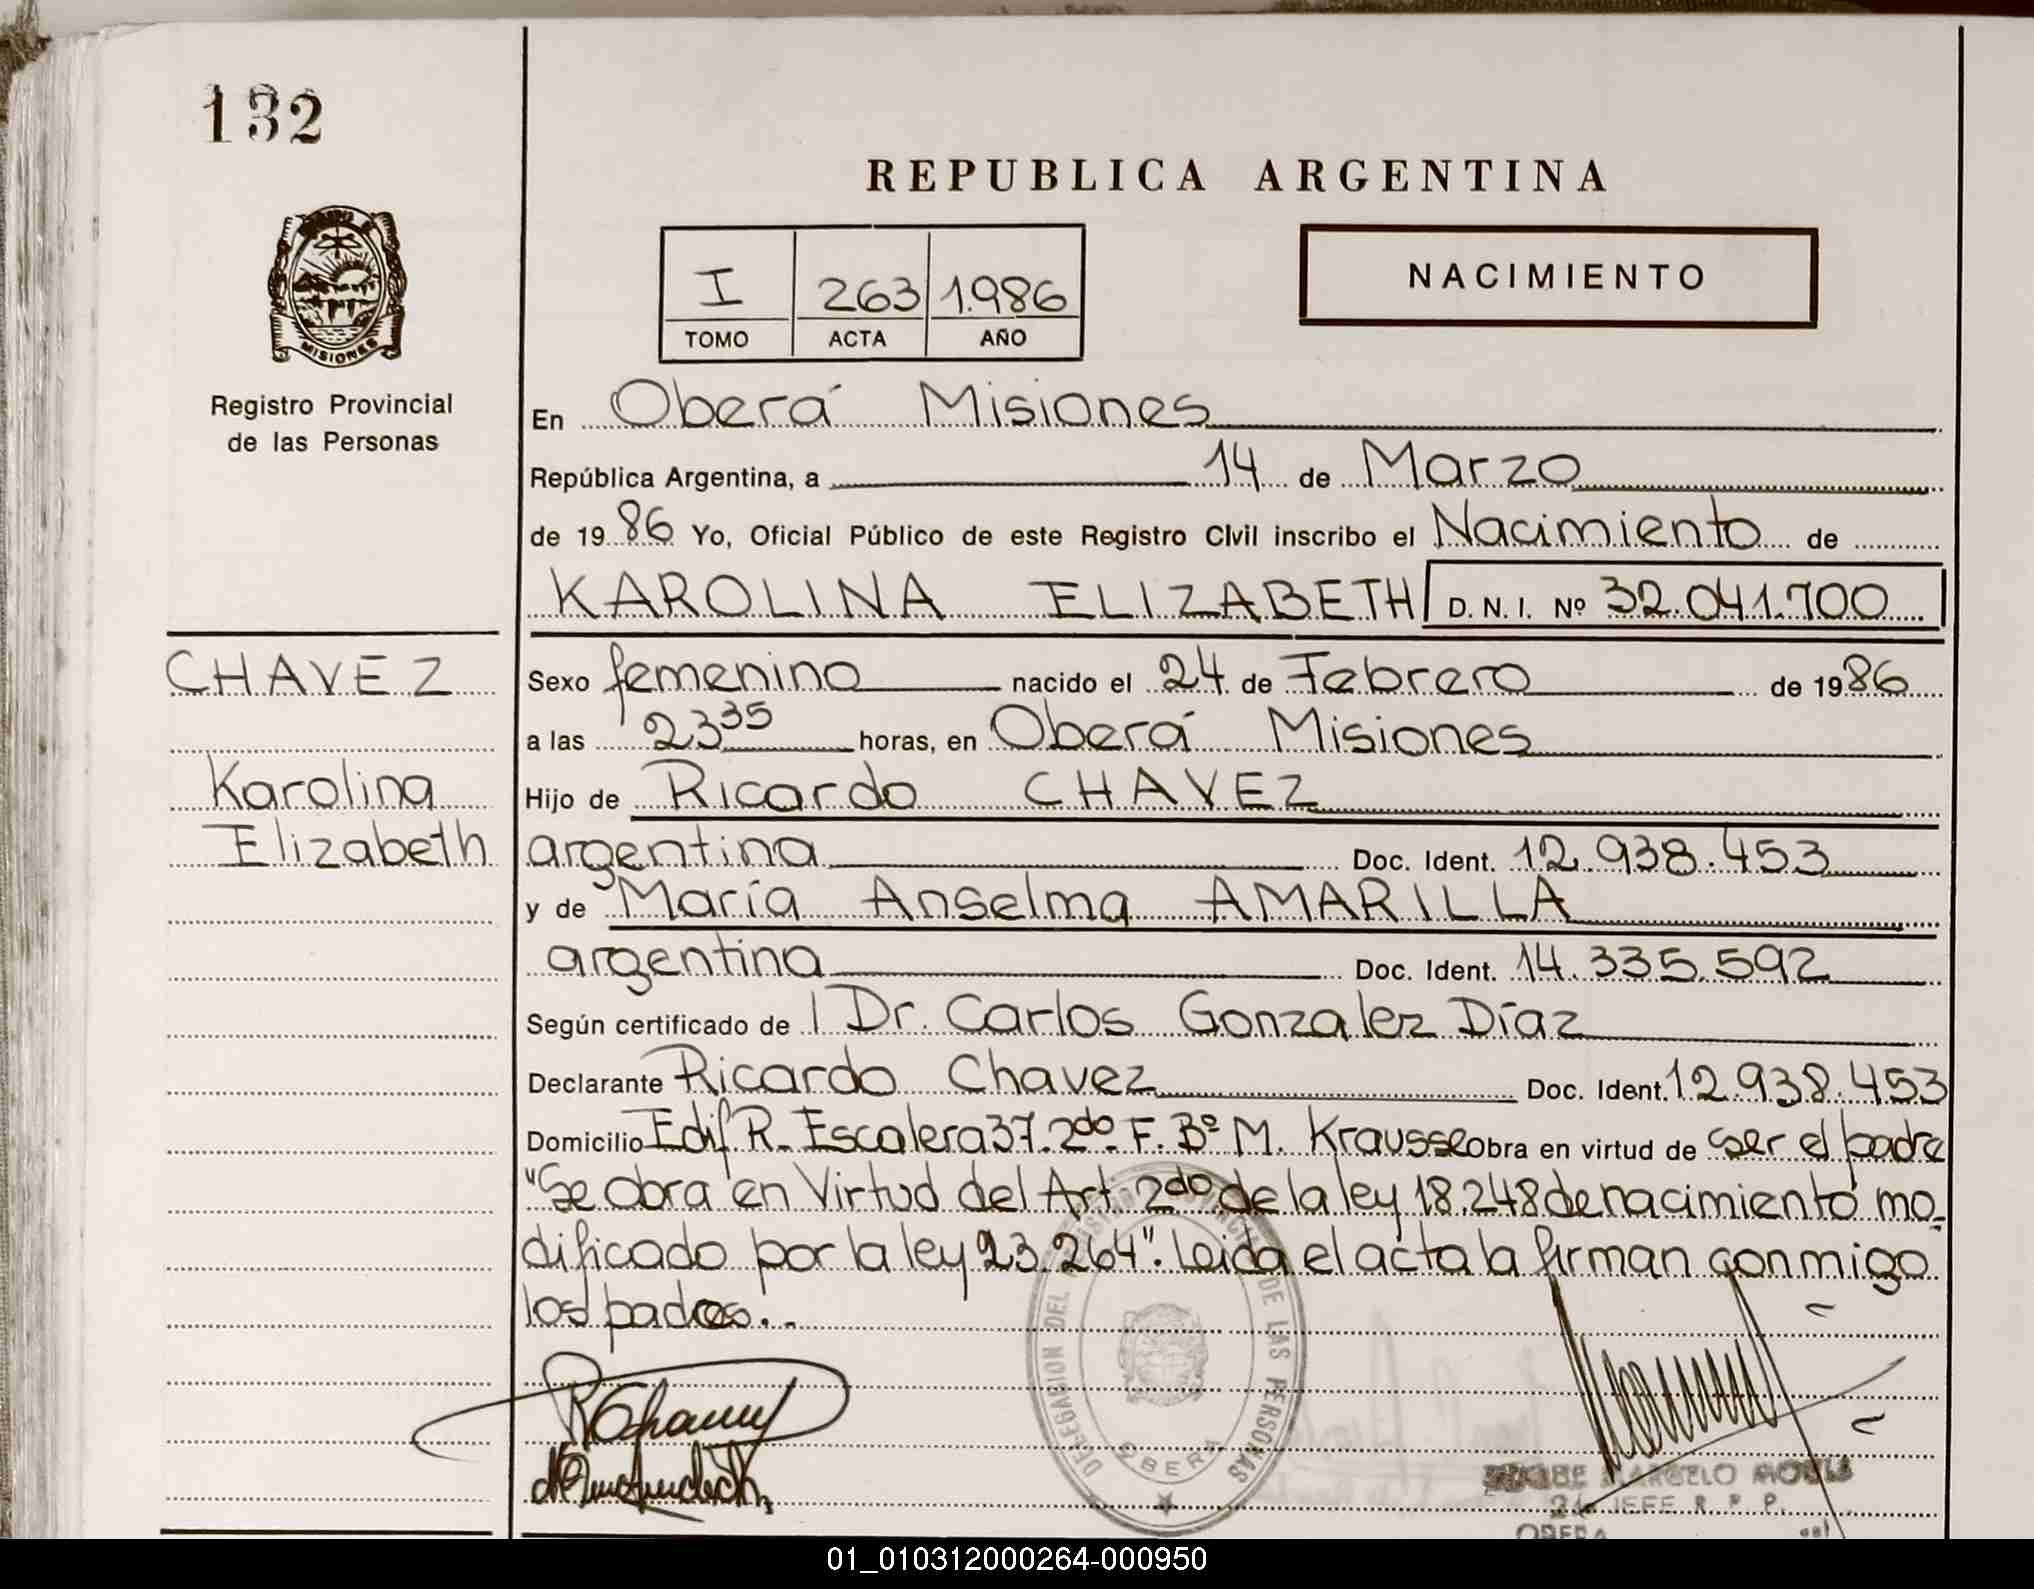 132
REPUBLICA ARGENTINA
I 263 1.986
TOMO ACTA AÑO
NACIMIENTO
MISIONES
Registro Provincial
de las Personas
En Oberá Misiones
República Argentina, a 14 de Marzo
de 1986 Yo, Oficial Público de este Registro Civil inscribo el Nacimiento de
KAROLINA ELIZABETH D. N. I. Nº 32.041.700
CHAVEZ
Karolina
Elizabeth
Sexo femenino nacido el 24 de Febrero de 1986
a las 23 35 horas, en Oberá Misiones
Hijo de Ricardo CHAVEZ
argentina Doc. Ident. 12.938.453
y de María Anselma AMARILLA
argentina Doc. Ident. 14.335.592
Según certificado de l Dr. Carlos Gonzalez Díaz
Declarante Ricardo Chavez Doc. Ident. 12.938.453
Domicilio Edif R. Escalera 37. 2do. F. Bº M. Krausse obra en virtud de ser el padre
"Se obra en Virtud del Art. 2do de la ley 18.248 de nacimiento mo-
dificado por la ley 23.264". Leida el acta la firman conmigo
los padres..
DELEGACION DEL REGISTRO PROVINCIAL DE LAS PERSONAS
OBERA
MARCELO
JEFE R. P. P.
OBERA
01_010312000264-000950